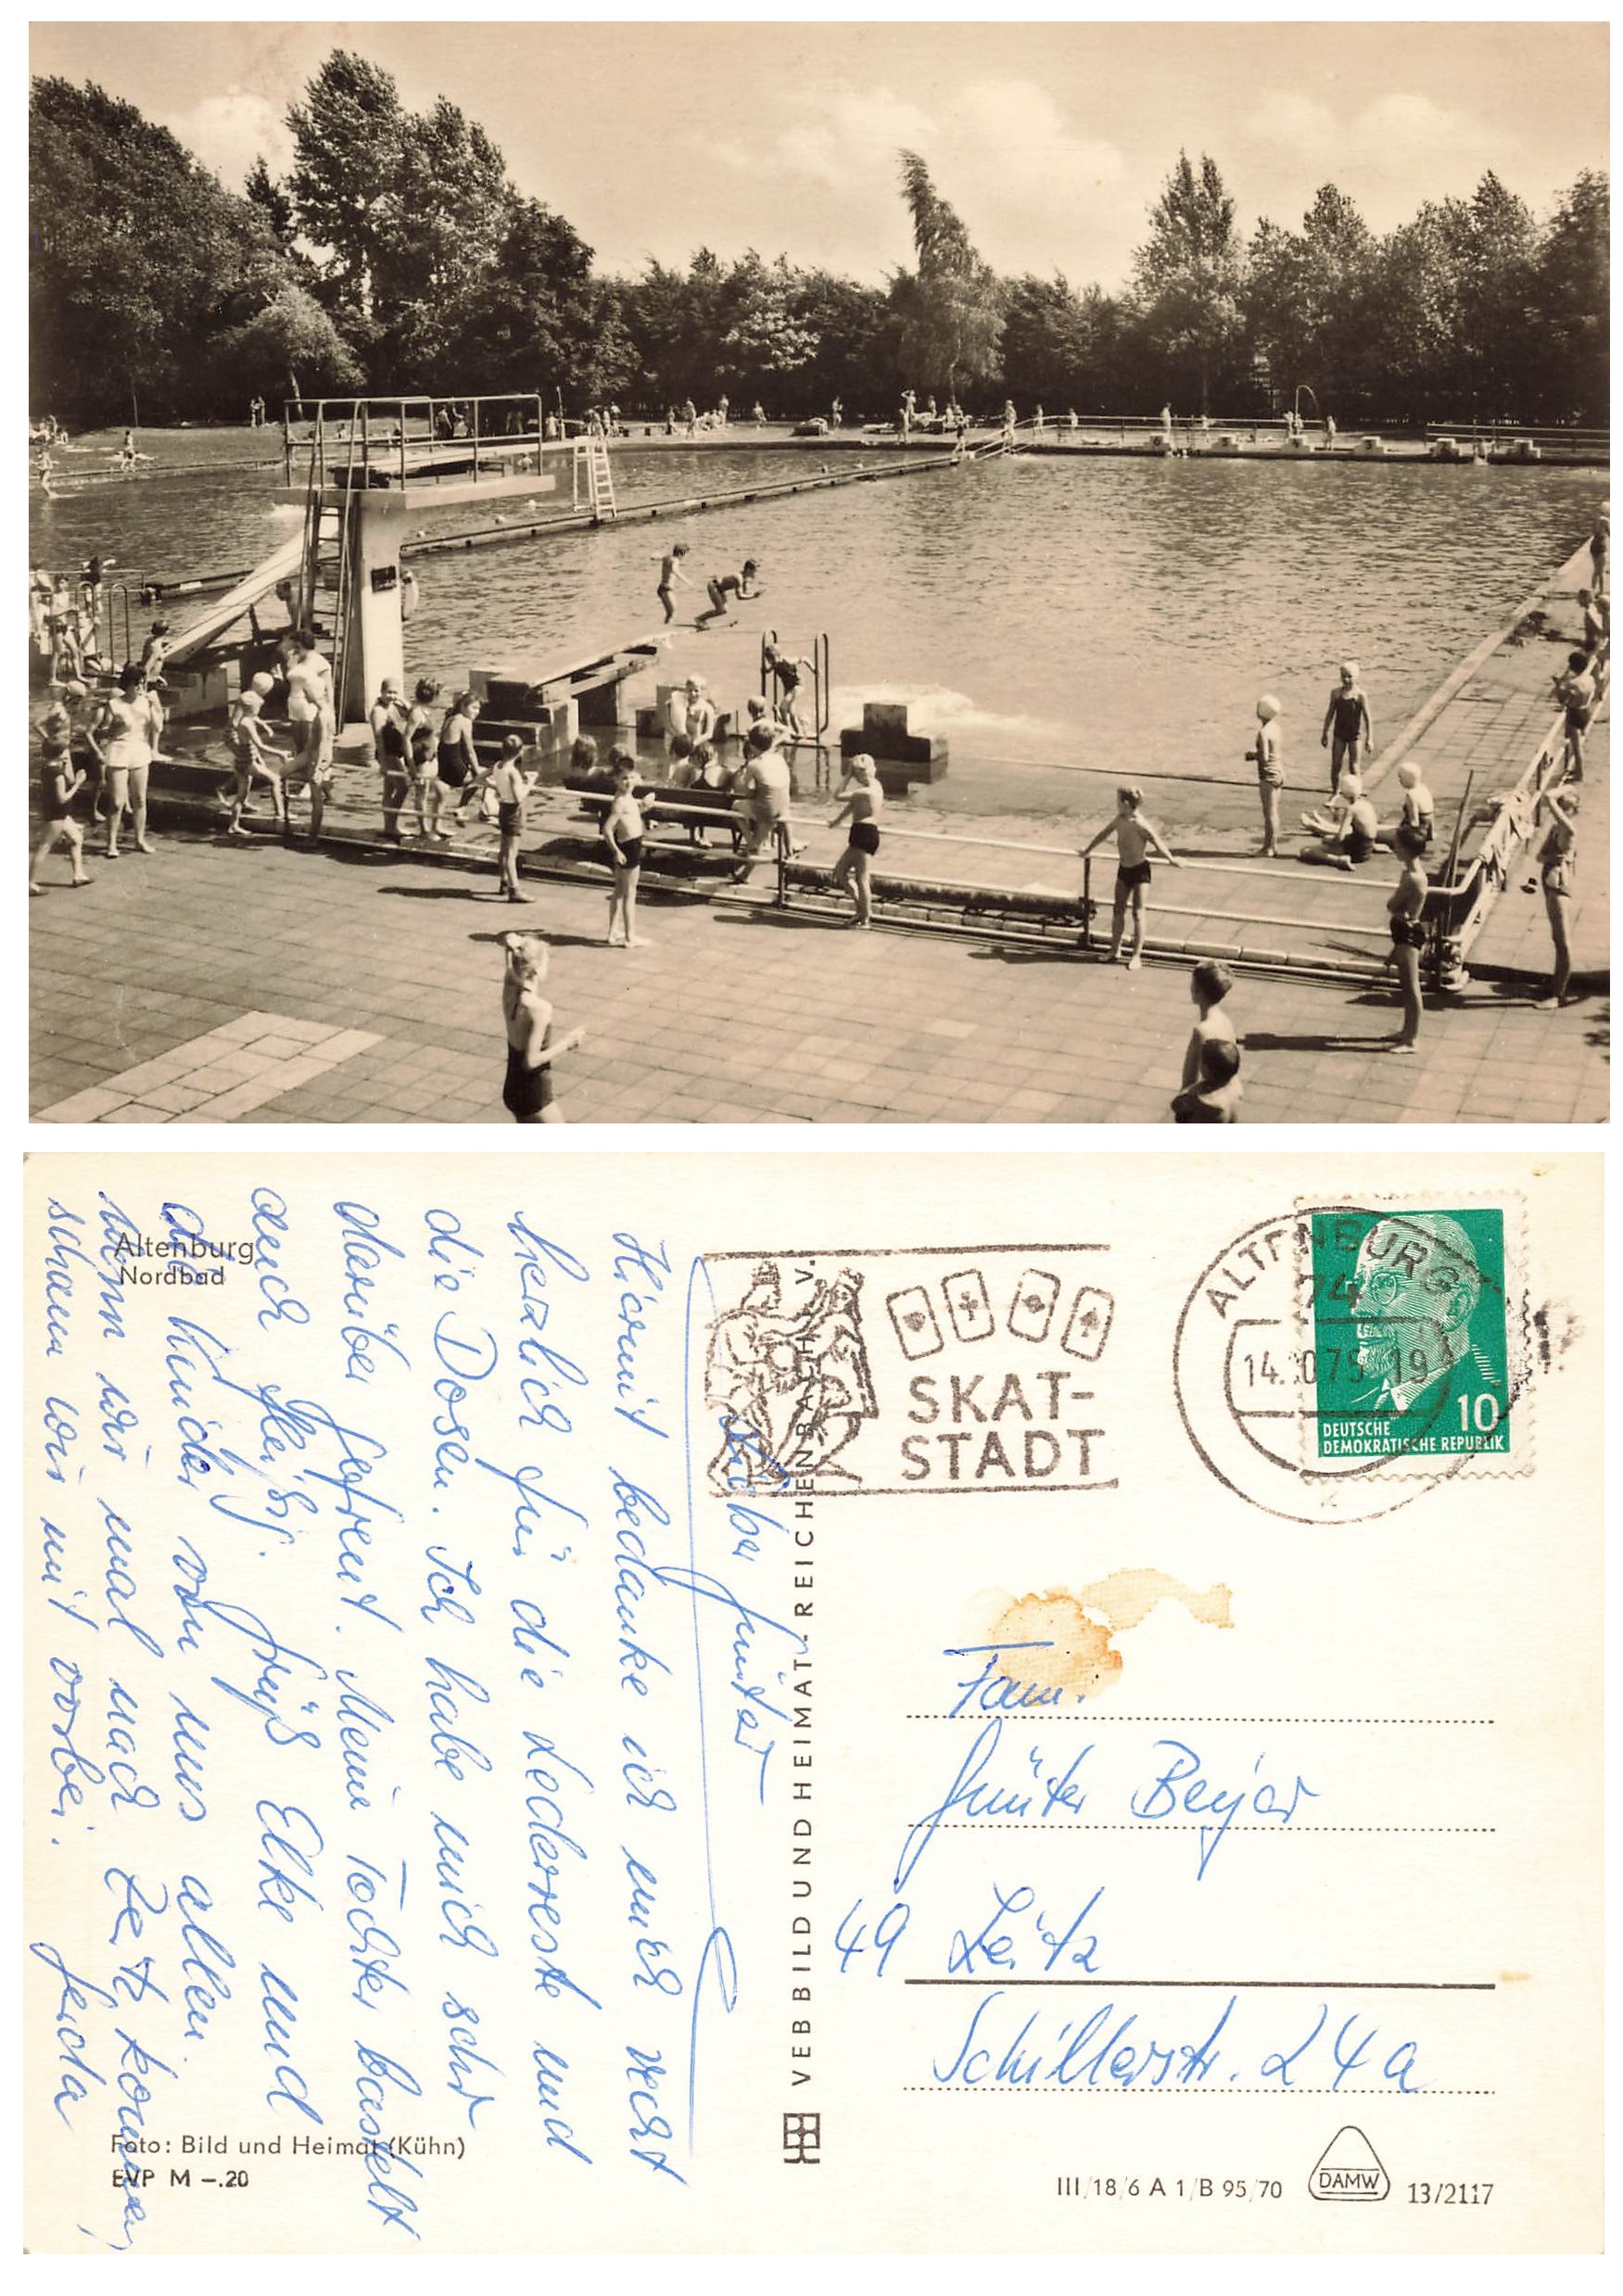 Altenburg
Nordbad
Lieber Günter
Hiermit bedanke ich mich recht
herzlich für die Lederreste und
die Dosen. Ich habe mich sehr
darüber gefreut. Meine Tochter bastelt
auch fleißig. Grüß Elke und
die Kinder von uns allen.
Wenn wir mal nach Zeitz kommen,
schauen wir mit vorbei. Gerda
Foto: Bild und Heimat (Kühn)
EVP M –.20
VEB BILD UND HEIMAT · REICHENBACH i. V.
SKAT-
STADT
ALTENBURG
74
19
10
DEUTSCHE
DEMOKRATISCHE REPUBLIK
Fam.
Günter Beyer
49 Zeitz
Schillerstr. 24a
III/18/6 A 1/B 95/70
DAMW
13/2117